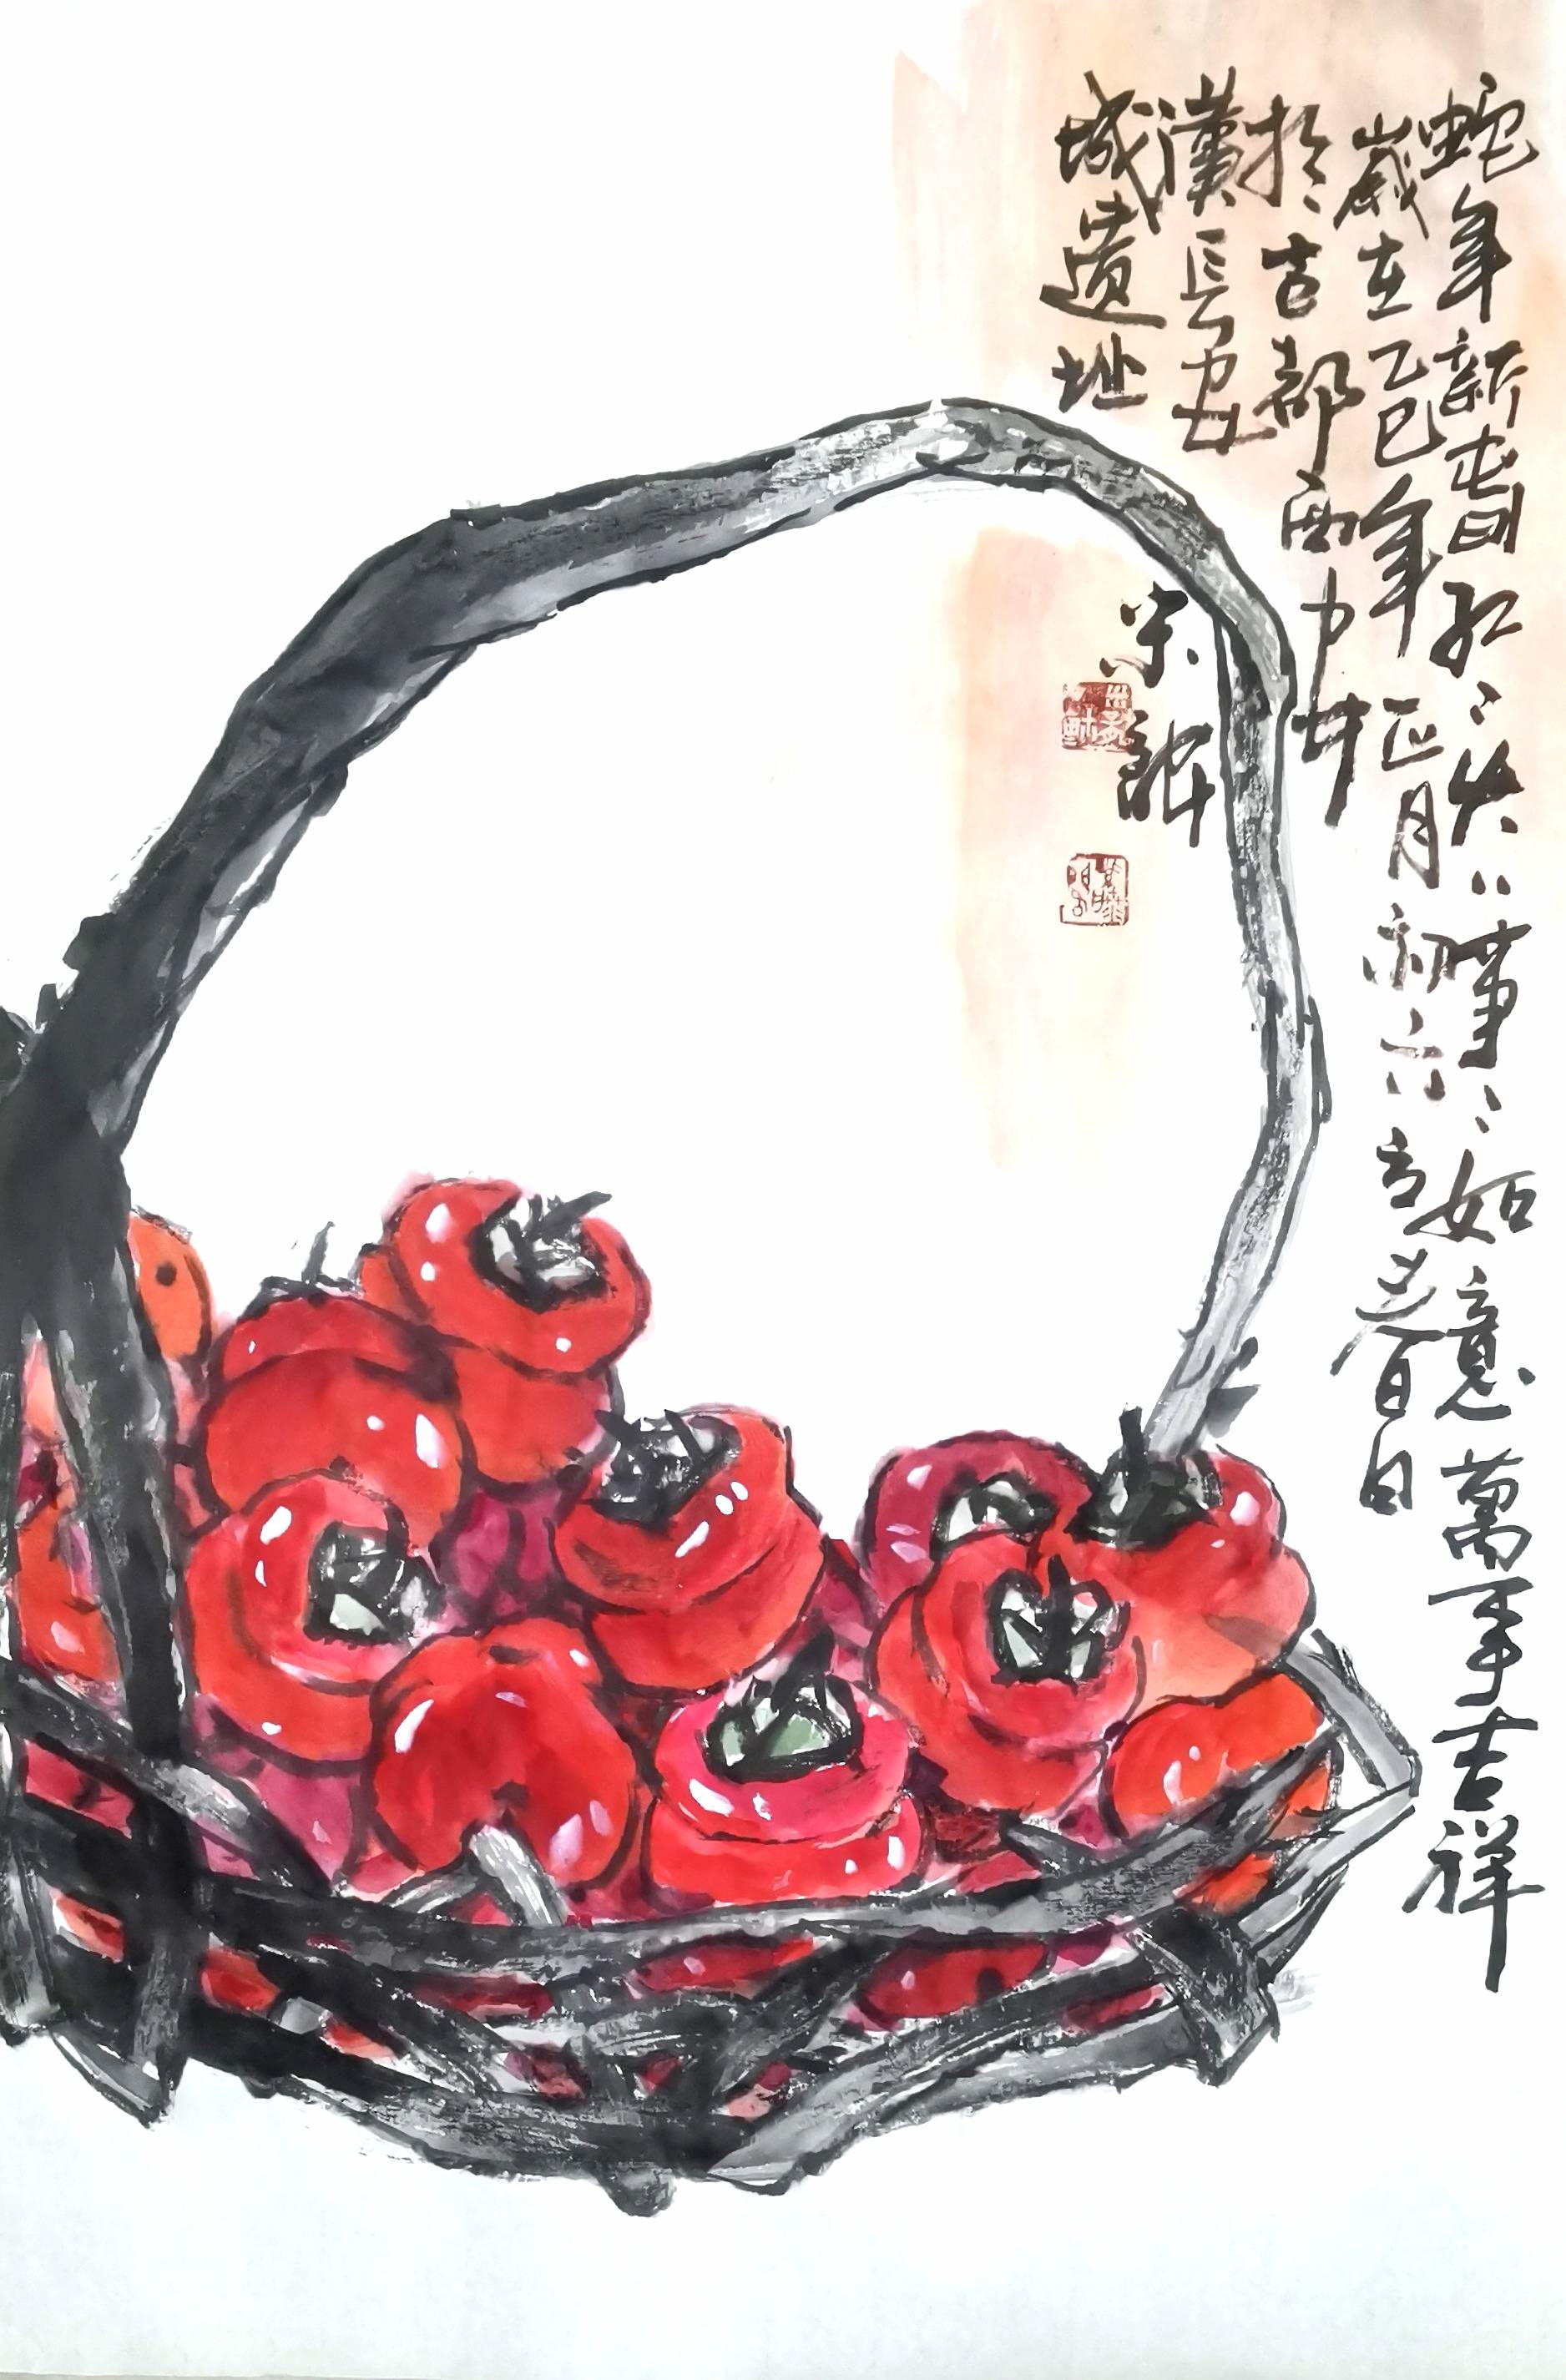 蛇年新春红火火事事如意萬事吉祥
歲在乙巳年正月初六立春百日
於古都西安
漢長安
城遺址